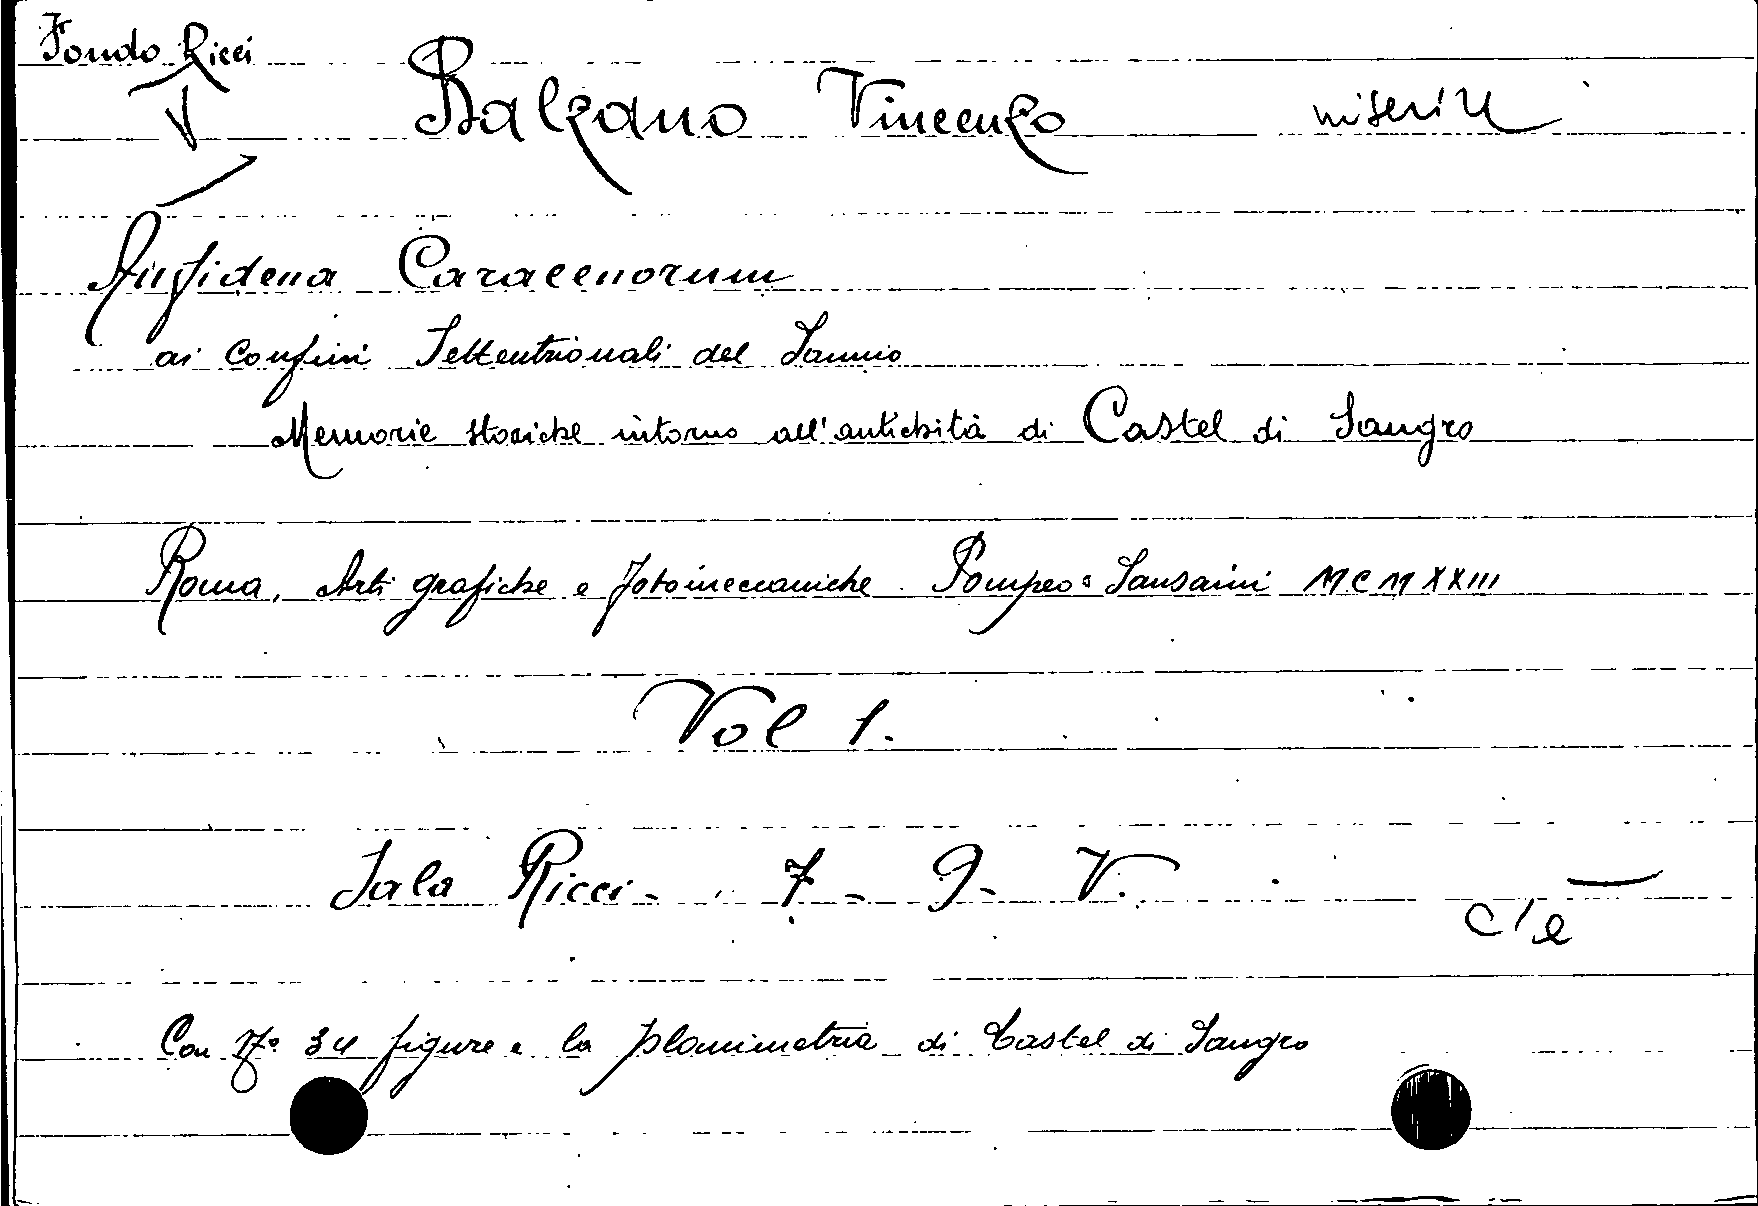 Fondo Ricci
Balzano Vincenzo inserire
Aufidena Caracenorum
ai confini Settentrionali del Sannio
Memorie storiche intorno all'antichità di Castel di Sangro
Roma, Arti grafiche e fotomeccaniche Pompeo Sansaini MCMXXIII
Vol 1.
Sala Ricci - 7 - 9 - V.
c'è
Con No 34 figure e la planimetria di Castel di Sangro